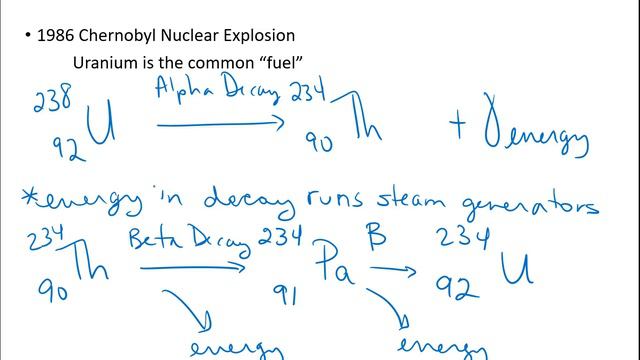 • 1986 Chernobyl Nuclear Explosion
Uranium is the common “fuel”
238 92 U Alpha Decay → 234 90 Th + γ energy
*energy in decay runs steam generators
234 90 Th Beta Decay → 234 91 Pa B → 234 92 U
energy energy